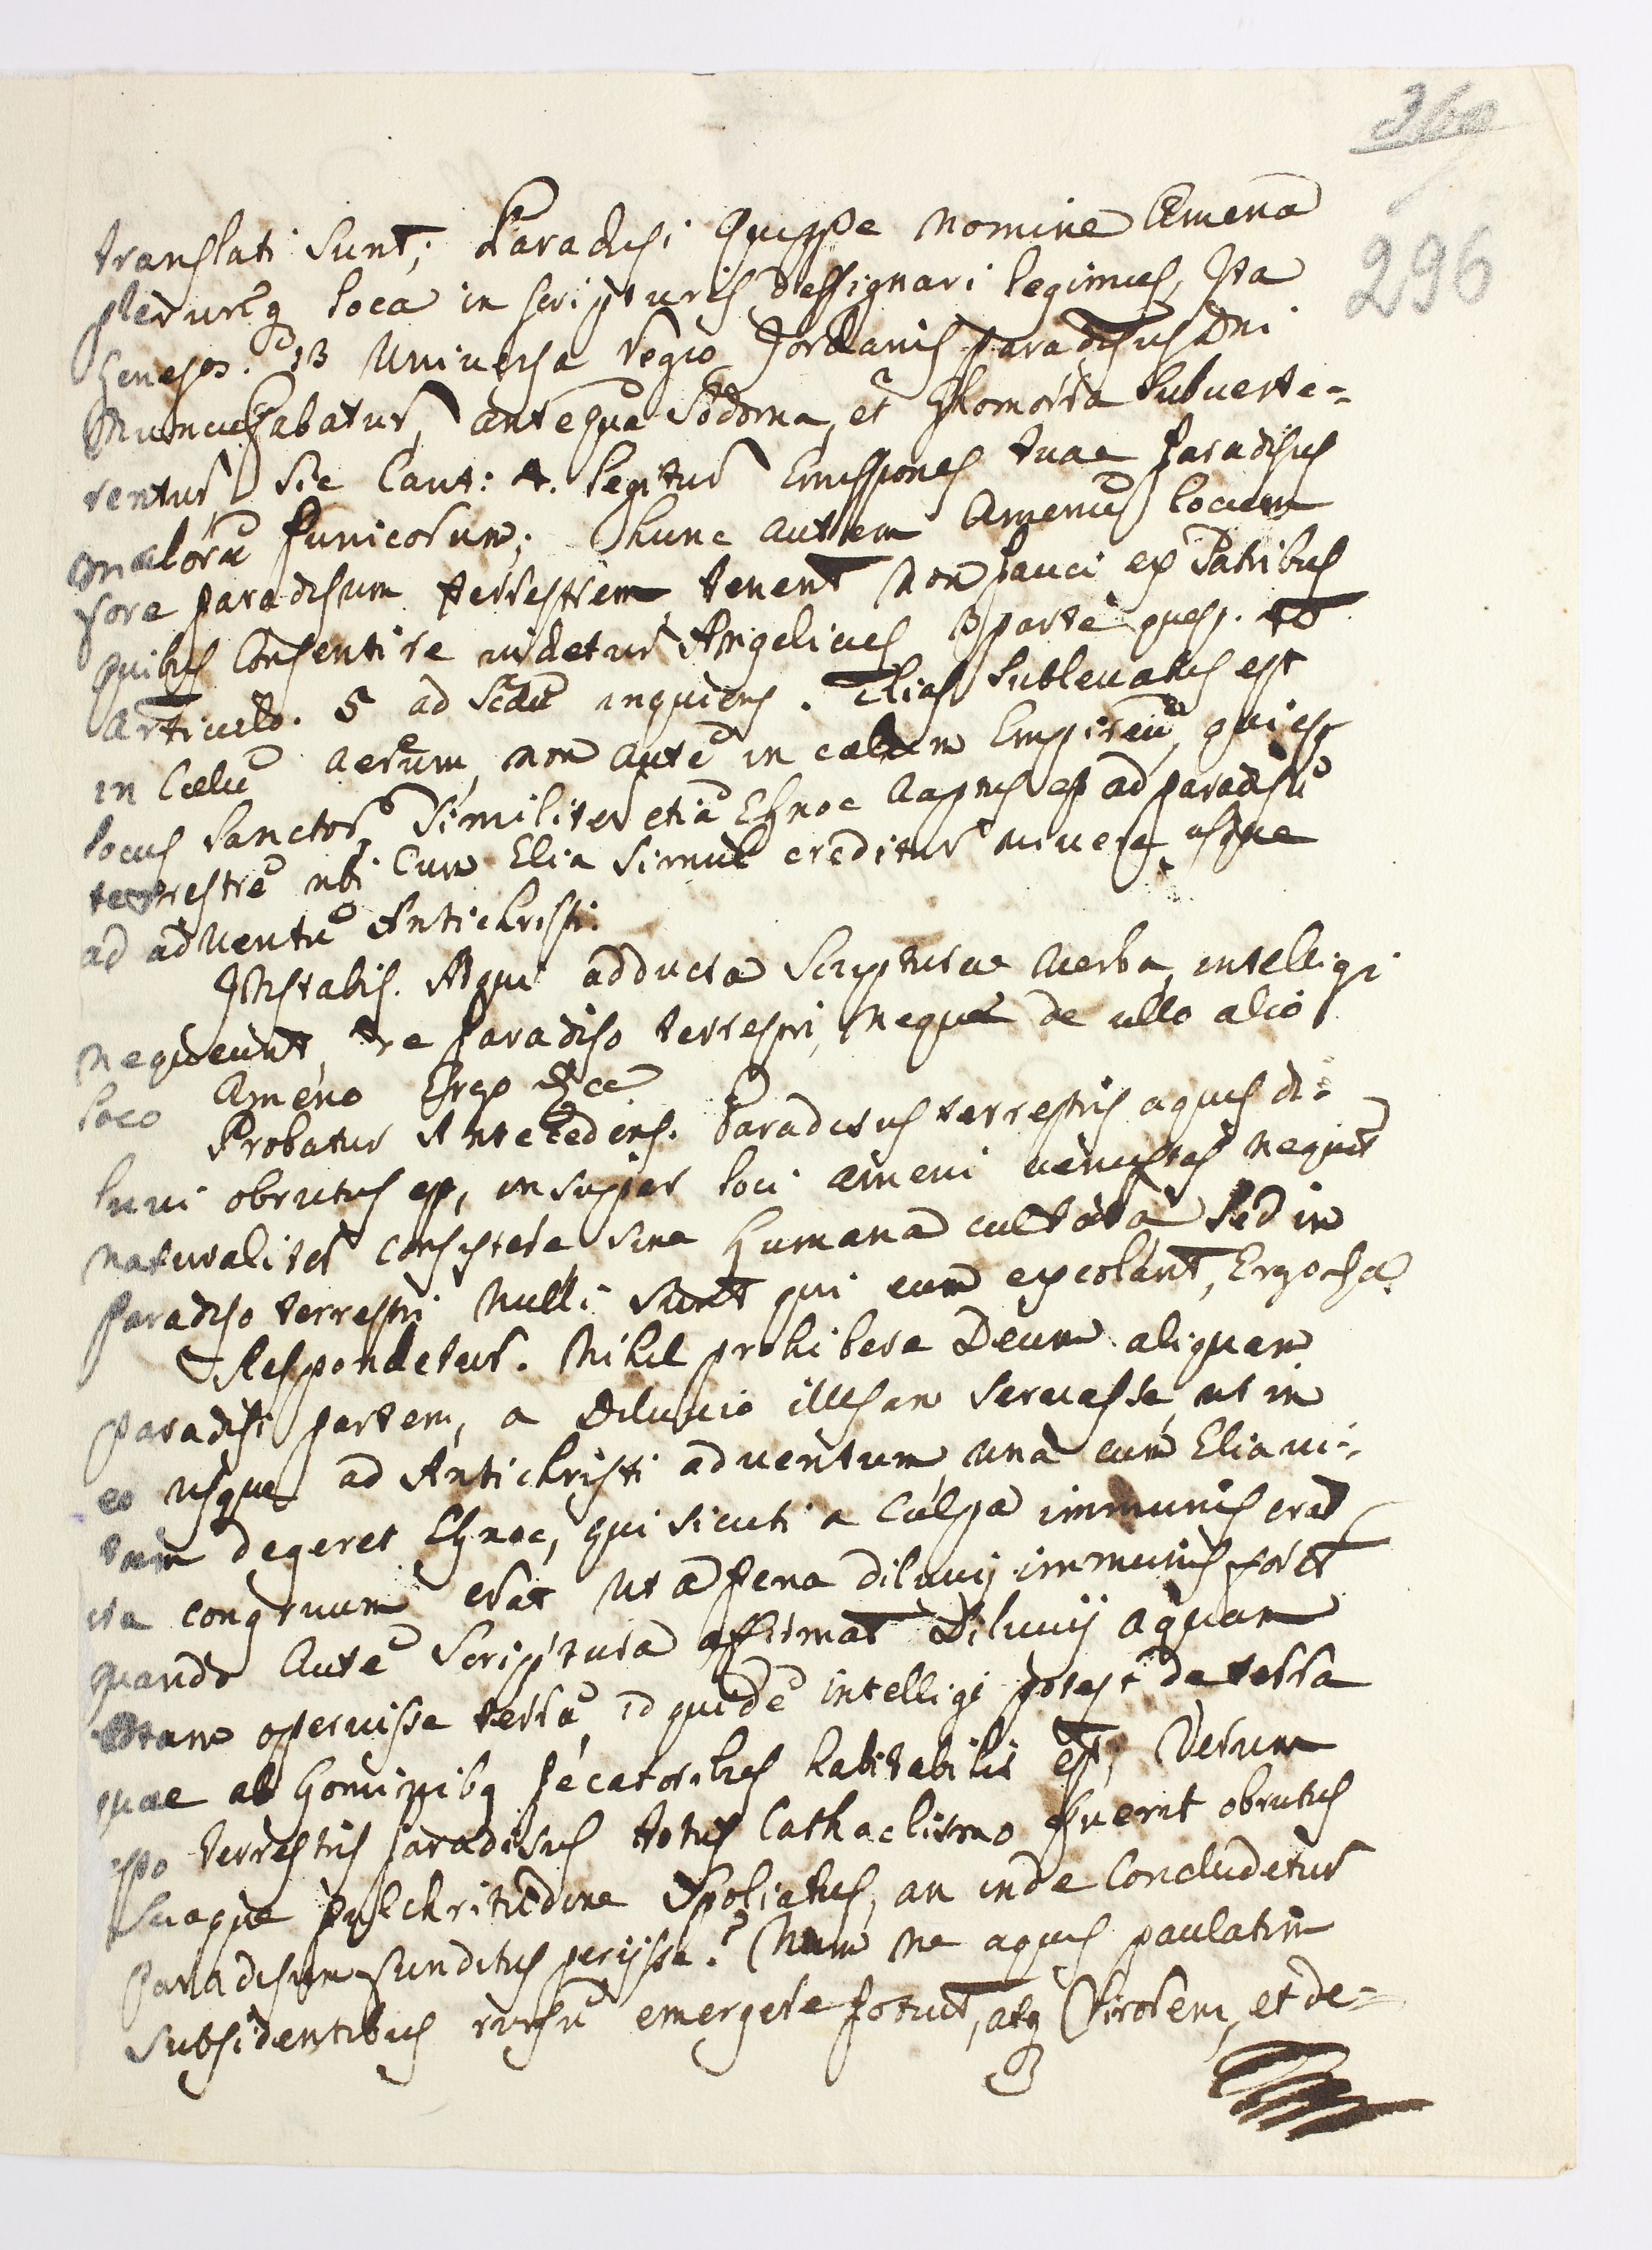 360
296
translati sunt; Paradisi quippe nomine amena
plerumq loca in scripturis dessignari legimus, Ita
Geneseos. 13 Universa regio Jordanis paradisus Dni
nuncupabatur, antequã Sodoma, et Ghomorra subverte=
rentur, Sic Cant: 4. legitur Emissiones tuae paradisus
malorũ punicorum; hunc autem amenũ locum
fore paradisum terrestrem tenent non pauci ex Patribus
quibus consentire videtur Angelicus 3 parte quest.
Articulo. 5 ad Scdũ inquiens. Elias sublevatus est
in Cœlũ aerum, non autẽ in cœlum Empireũ, qui est
locus Sanctorũ, Similiter etiã Ehnoc raptus est ad paradisũ
terrestrẽ ubi cum Elia simul creditur vivere usque
ad adventũ Antichristi.
Instabis. Atqui adducta Scripturæ verba, intelligi
nequeunt, de paradiso terrestri, neque de ullo alio
loco Ameno Ergo &ca
Probatur Antecedens. Paradisus terrestris aquis di=
luvi obrutus est, insuper loci ameni venustas nequit
naturaliter consistere sine humana cultura, sed in
paradiso terrestri nulli sunt qui eum excolant, Ergo &a.
Respondetur. Nihil prohibere Deum aliquam
paradisi partem, a Diluvio illesam servasse, ut in
eo usque ad Antichristi adventum una cum Elia vi=
tam degeret Ehnoc, qui sicuti a culpa immunis erat
ita congruum erat ut a pena diluvij immunis foret
quando autẽ Scriptura affirmat Diluvij aquam
totam operuisse terrã, id quidẽ intelligi potest de terra
quae ab hominibq pecatoribus habitabilis est, Verum
esto terrestris paradisus totus Cathaclismo fuerit obrutus
suaque pulchritudine spoliatus, an inde concludetur
paradisum funditus perijsse? Num ne aquis paulatim
subsidentibus rursũ emergere potuit, atq virorem, et de=